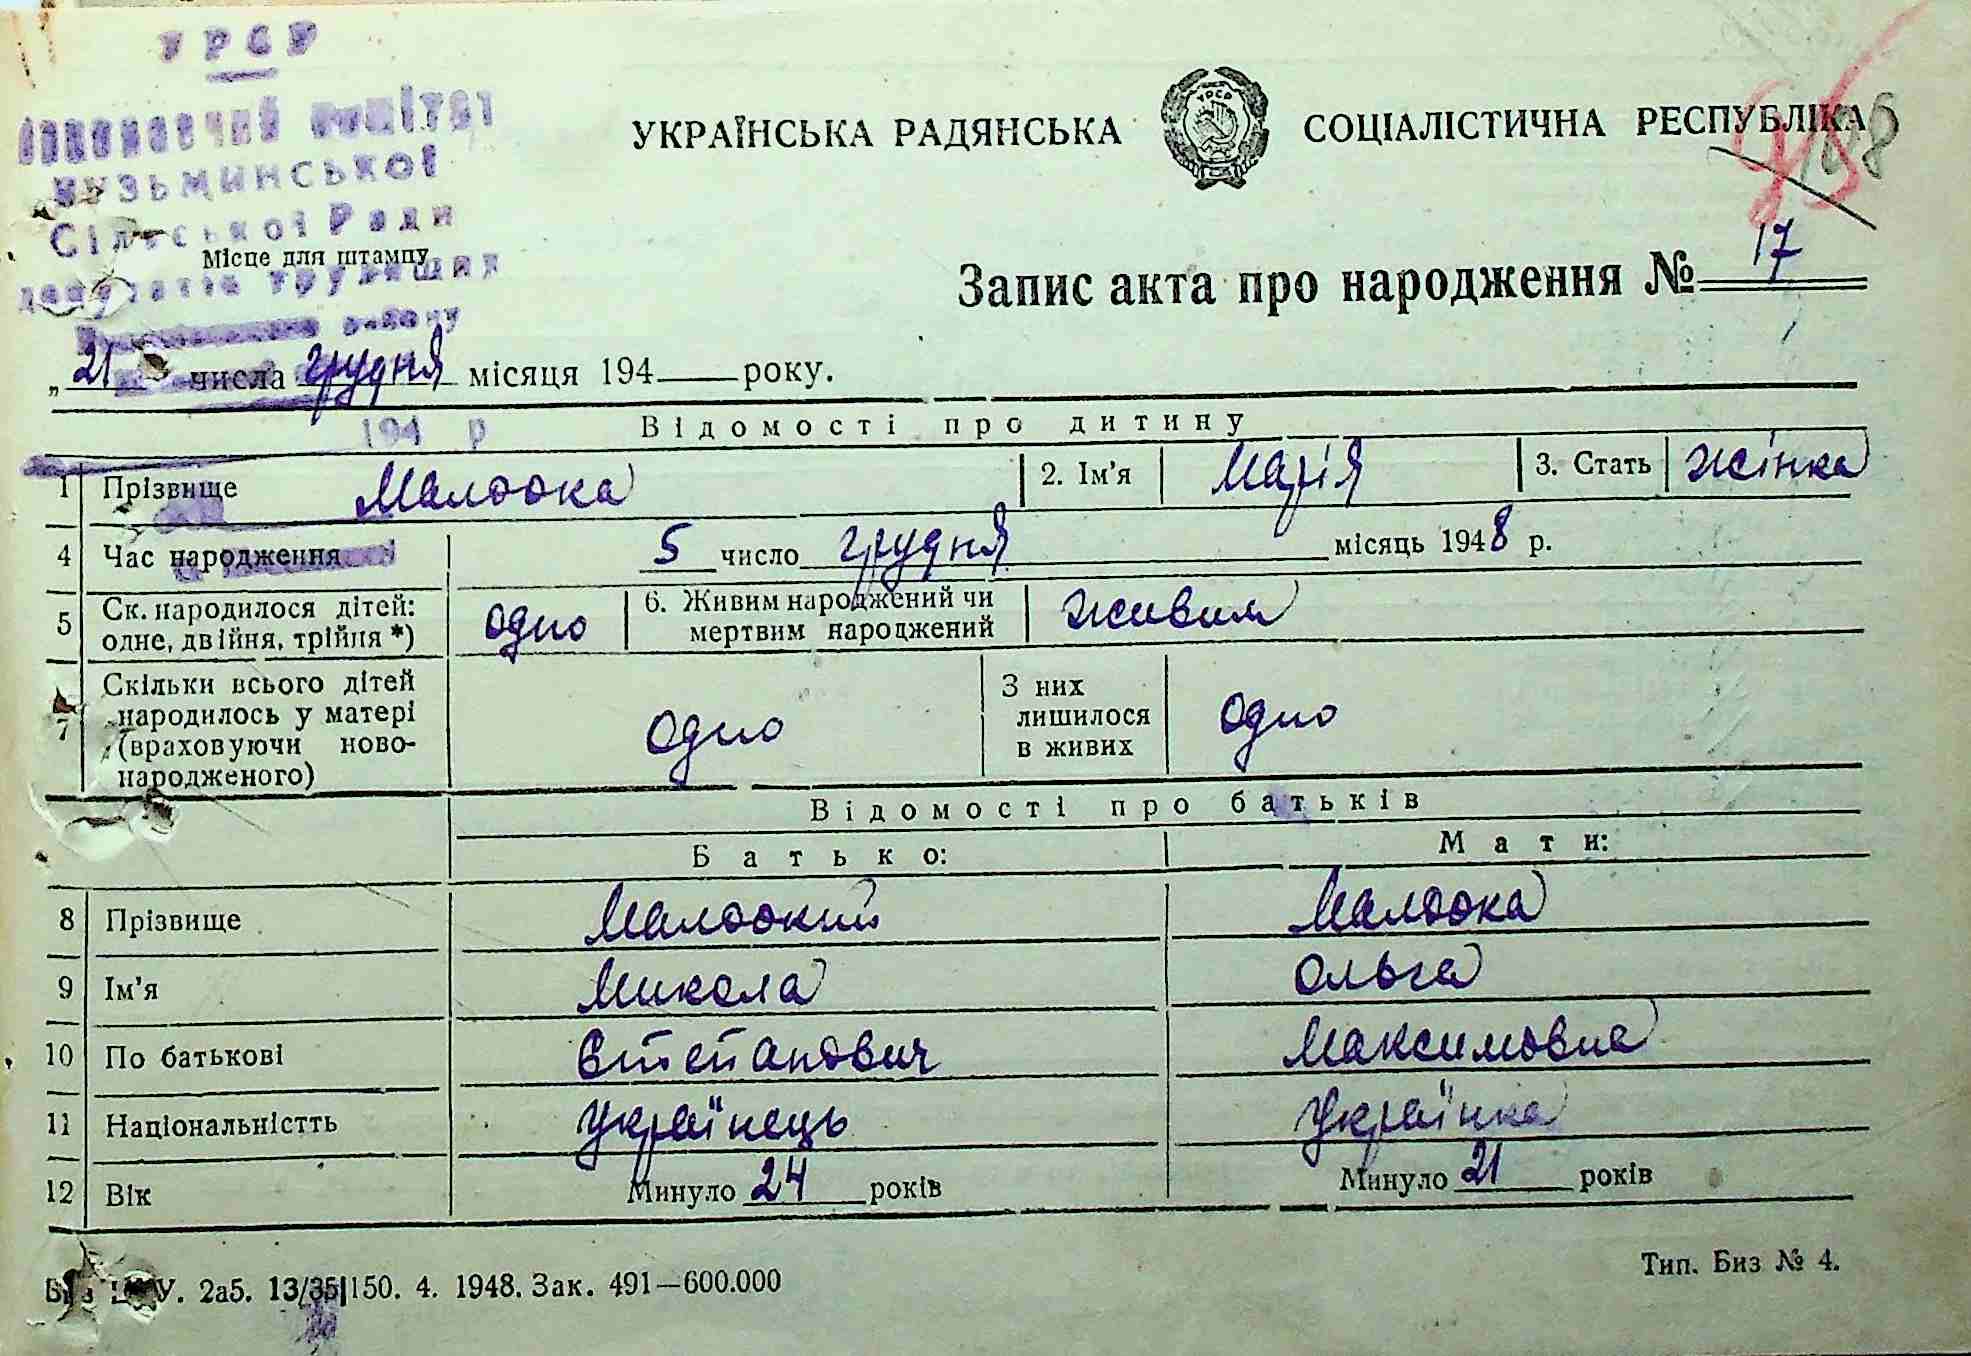 УРСР
Виконавчий комітет
Кузьминської
Сільської Ради
депутатів трудящих
району
194 р
УКРАЇНСЬКА РАДЯНСЬКА СОЦІАЛІСТИЧНА РЕСПУБЛІКА
УРСР
Місце для штампу
Запис акта про народження № 17
„21 числа грудня місяця 194 року.
Відомості про дитину
1 Прізвище Малоока 2. Ім'я Марія 3. Стать жінка
4 Час народження 5 число грудня місяць 1948 р.
5 Ск. народилося дітей: одно 6. Живим народжений чи живим
одне, двійня, трійня *) мертвим народжений
7 Скільки всього дітей З них
народилось у матері одно лишилося одно
(враховуючи ново- в живих
народженого)
Відомості про батьків
Батько: Мати:
8 Прізвище Малоокий Малоока
9 Ім'я Микола Ольга
10 По батькові Степанович Максимовна
11 Національністть Українець Українка
12 Вік Минуло 24 років Минуло 21 років
У. 2а5. 13/35|150. 4. 1948. Зак. 491—600.000
Тип. Биз № 4.